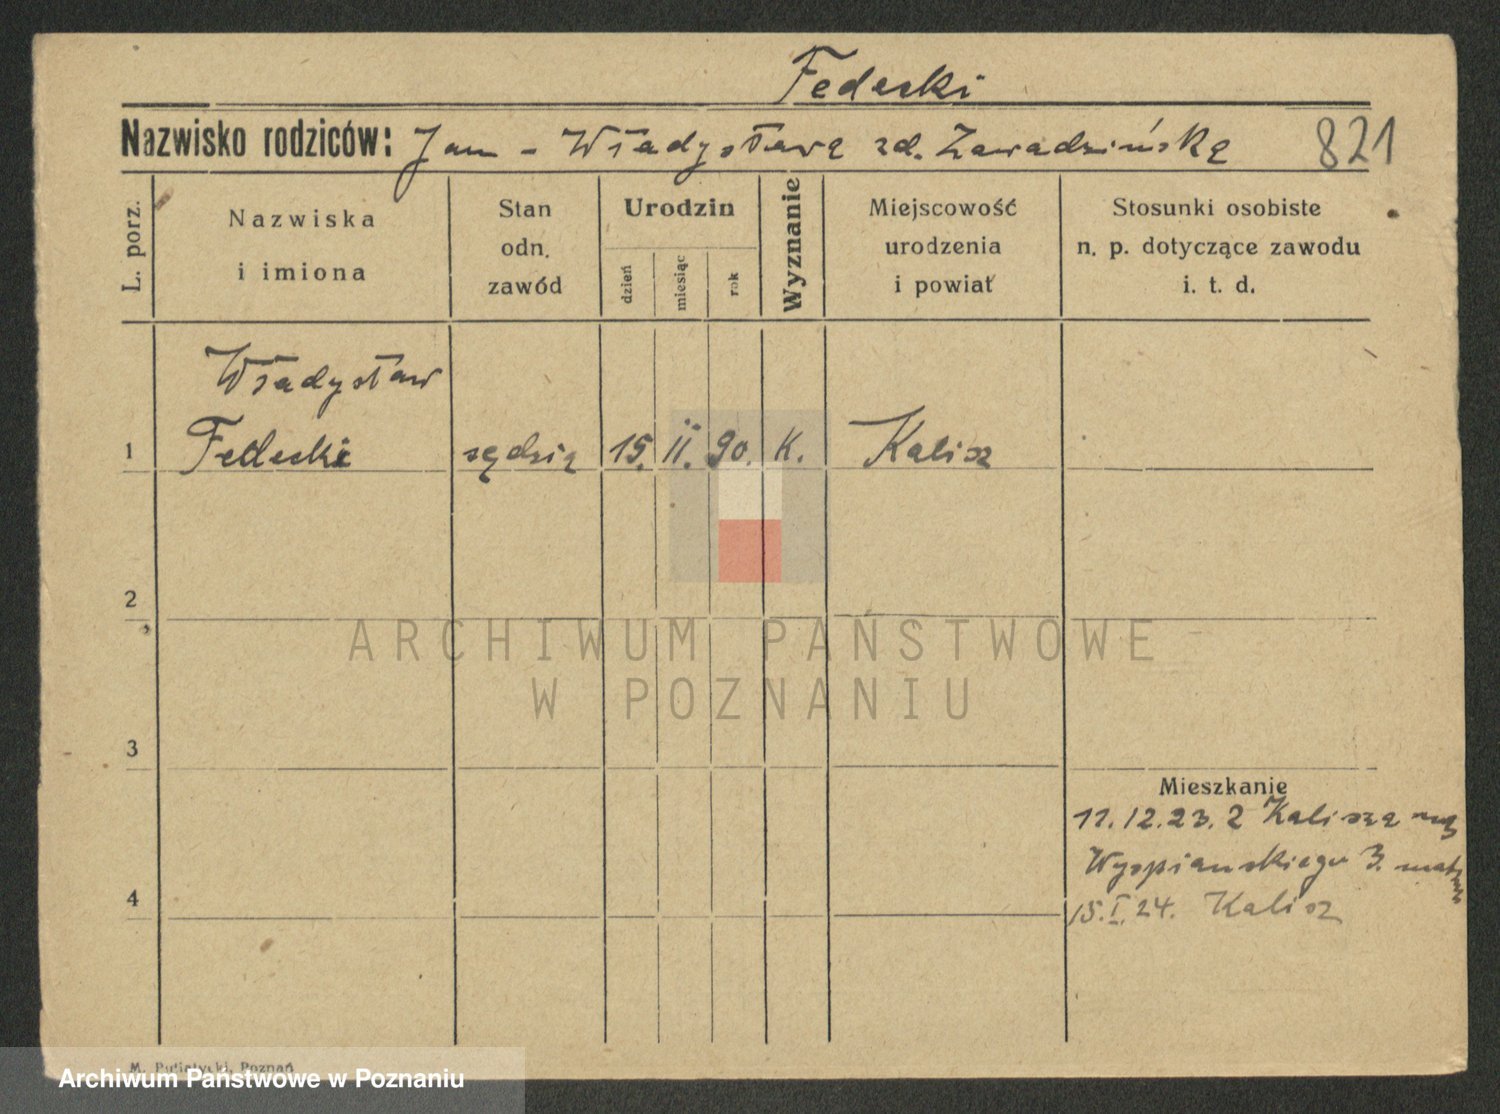 Fedecki
Nazwisko rodziców: Jan - Władysława zd. Zawadzińska 821
L. porz.
Nazwiska
i imiona
Stan
odn.
zawód
Urodzin
dzień
miesiąc
rok
Wyznanie
Miejscowość
urodzenia
i powiat
Stosunki osobiste
n. p. dotyczące zawodu
i. t. d.
Władysław
1 Fedecki sędzia 15. II. 90. K. Kalisz
2
ARCHIWUM PAŃSTWOWE
W POZNANIU
3
Mieszkanie
11.12.23. z Kalisza
Wyspiańskiego 3.
4
15.I.24. Kalisz
M. Poznań
Archiwum Państwowe w Poznaniu